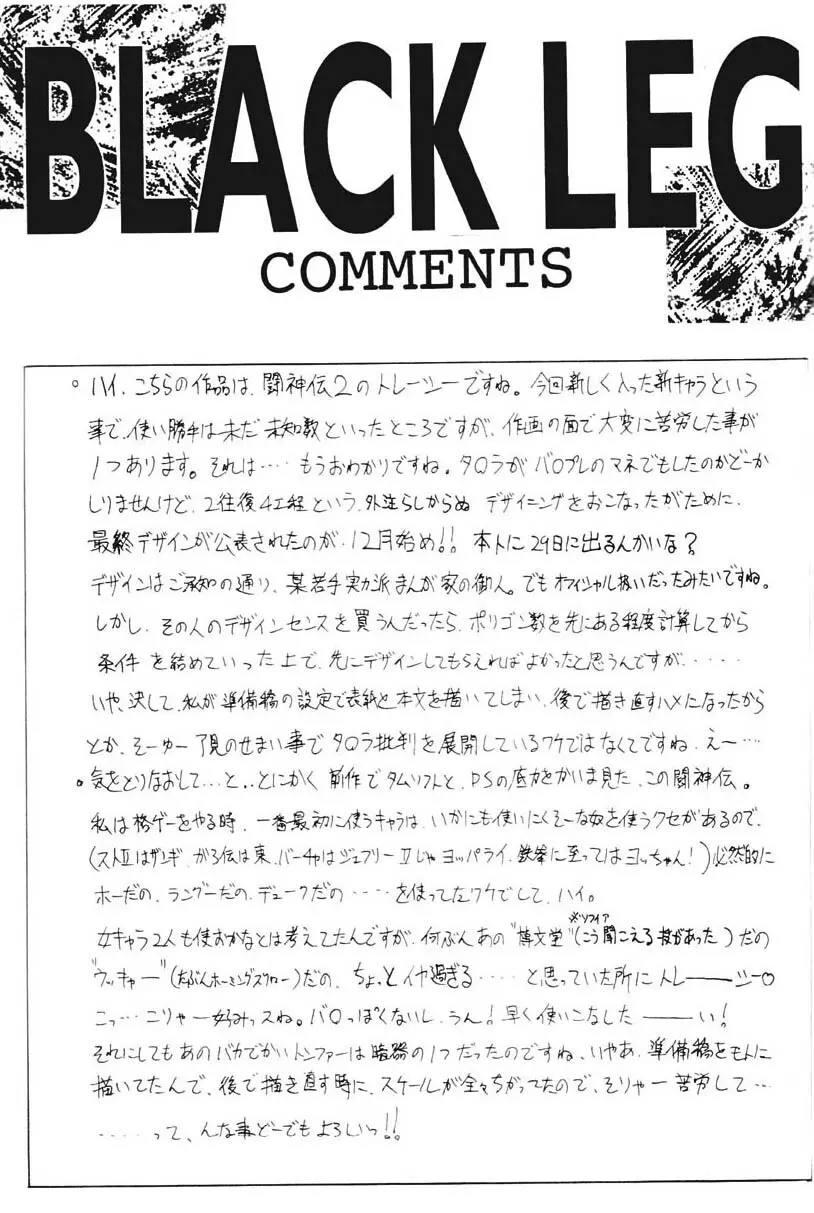 BLACK LEG
COMMENTS
。ハイ、こちらの作品は、闘神伝2のトレーシーですね。今回新しく入った新キャラという
事で、使い勝手は未だ未知数といったところですが、作画の面で大変に苦労した事が
1つあります。それは‥‥もうおわかりですね。タカラがバロプレのマネでもしたのかどーか
しりませんけど、2往復4工程という、外注らしからぬデザイニングをおこなったがために、
最終デザインが公表されたのが、12月始め!!本トに29日に出るんかいな?
デザインはご承知の通り、某若手実力派まんが家の御人。でもオフィシャル扱いだったみたいですね。
しかし、その人のデザインセンスを買うんだったら、ポリゴン数を先にある程度計算してから
条件を結めていった上で、先にデザインしてもらえればよかったと思うんですが、‥‥‥
いや、決して、私が準備稿の設定で表紙と本文を描いてしまい、後で描き直すハメになったから
とか、そーゆー了見のせまい事でタカラ批判を展開しているワケではなくてですね、えー‥‥
。気をとりなおして‥‥と‥とにかく前作でタムソフトと、PSの底力をかいま見た、この闘神伝。
私は格ゲーをやる時、一番最初に使うキャラは、いかにも使いにくそーな奴を使うクセがあるので、
(ストIIはザンギ、がろ伝は東、バーチャはジェフリーIIじゃヨッパライ、鉄拳に至ってはヨッちゃん!)必然的に
ホーだの、ラングーだの、デュークだの‥‥を使ってたワケでして、ハイ。
※ソフィア
女キャラ2人も使おかなとは考えてたんですが、何ぶんあの"博文堂"(こう聞こえる技があった)だの
"ウッキャー"(たぶんホーミングスクロー)だの、ちょっとイヤ過ぎる‥‥と思っていた所にトレーーシー♡
こっ‥こりゃー好みっスね。バロっぽくないし、うん!早く使いこなしたーーい!
それにしてもあのバカでかいトンファーは暗器の1つだったのですね、いやあ、準備稿をモトに
描いてたんで、後で描き直す時に、スケールが全々ちがってたので、そりゃー苦労して‥‥
‥‥‥って、んな事どーでもよろしいっ!!